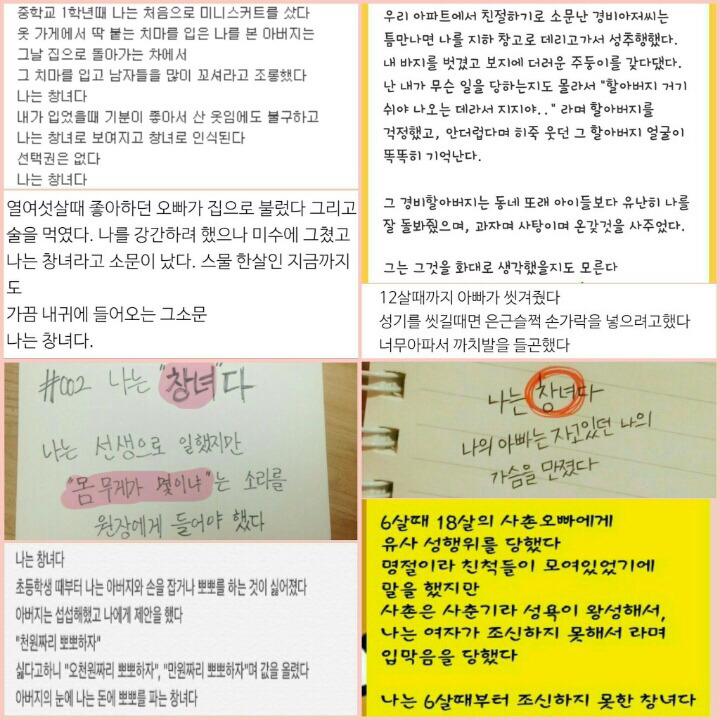 중학교 1학년때 나는 처음으로 미니스커트를 샀다
옷 가게에서 딱 붙는 치마를 입은 나를 본 아버지는
그날 집으로 돌아가는 차에서
그 치마를 입고 남자들을 많이 꼬셔라고 조롱했다
나는 창녀다
내가 입었을때 기분이 좋아서 산 옷임에도 불구하고
나는 창녀로 보여지고 창녀로 인식된다
선택권은 없다
나는 창녀다
우리 아파트에서 친절하기로 소문난 경비아저씨는
틈만나면 나를 지하 창고로 데리고가서 성추행했다.
내 바지를 벗겼고 보지에 더러운 주둥이를 갖다댔다.
난 내가 무슨 일을 당하는지도 몰라서 "할아버지 거기
쉬야 나오는 데라서 지지야.." 라며 할아버지를
걱정했고, 안더럽다며 히죽 웃던 그 할아버지 얼굴이
똑똑히 기억난다.
그 경비할아버지는 동네 또래 아이들보다 유난히 나를
잘 돌봐줬으며, 과자며 사탕이며 온갖것을 사주었다.
그는 그것을 화대로 생각했을지도 모른다
열여섯살때 좋아하던 오빠가 집으로 불렀다 그리고
술을 먹였다. 나를 강간하려 했으나 미수에 그쳤고
나는 창녀라고 소문이 났다. 스물 한살인 지금까지
도
가끔 내귀에 들어오는 그소문
나는 창녀다.
12살때까지 아빠가 씻겨줬다
성기를 씻길때면 은근슬쩍 손가락을 넣으려고했다
너무아파서 까치발을 들곤했다
#002 나는 "창녀"다
나는 선생으로 일했지만
"몸무게가 몇이냐"는 소리를
원장에게 들어야 했다
나는 창녀다
나의 아빠는 자고있던 나의
가슴을 만졌다
나는 창녀다
초등학생 때부터 나는 아버지와 손을 잡거나 뽀뽀를 하는 것이 싫어졌다
아버지는 섭섭해했고 나에게 제안을 했다
"천원짜리 뽀뽀하자"
싫다고하니 "오천원짜리 뽀뽀하자", "만원짜리 뽀뽀하자"며 값을 올렸다
아버지의 눈에 나는 돈에 뽀뽀를 파는 창녀다
6살때 18살의 사촌오빠에게
유사 성행위를 당했다
명절이라 친척들이 모여있었기에
말을 했지만
사촌은 사춘기라 성욕이 왕성해서,
나는 여자가 조신하지 못해서 라며
입막음을 당했다
나는 6살때부터 조신하지 못한 창녀다